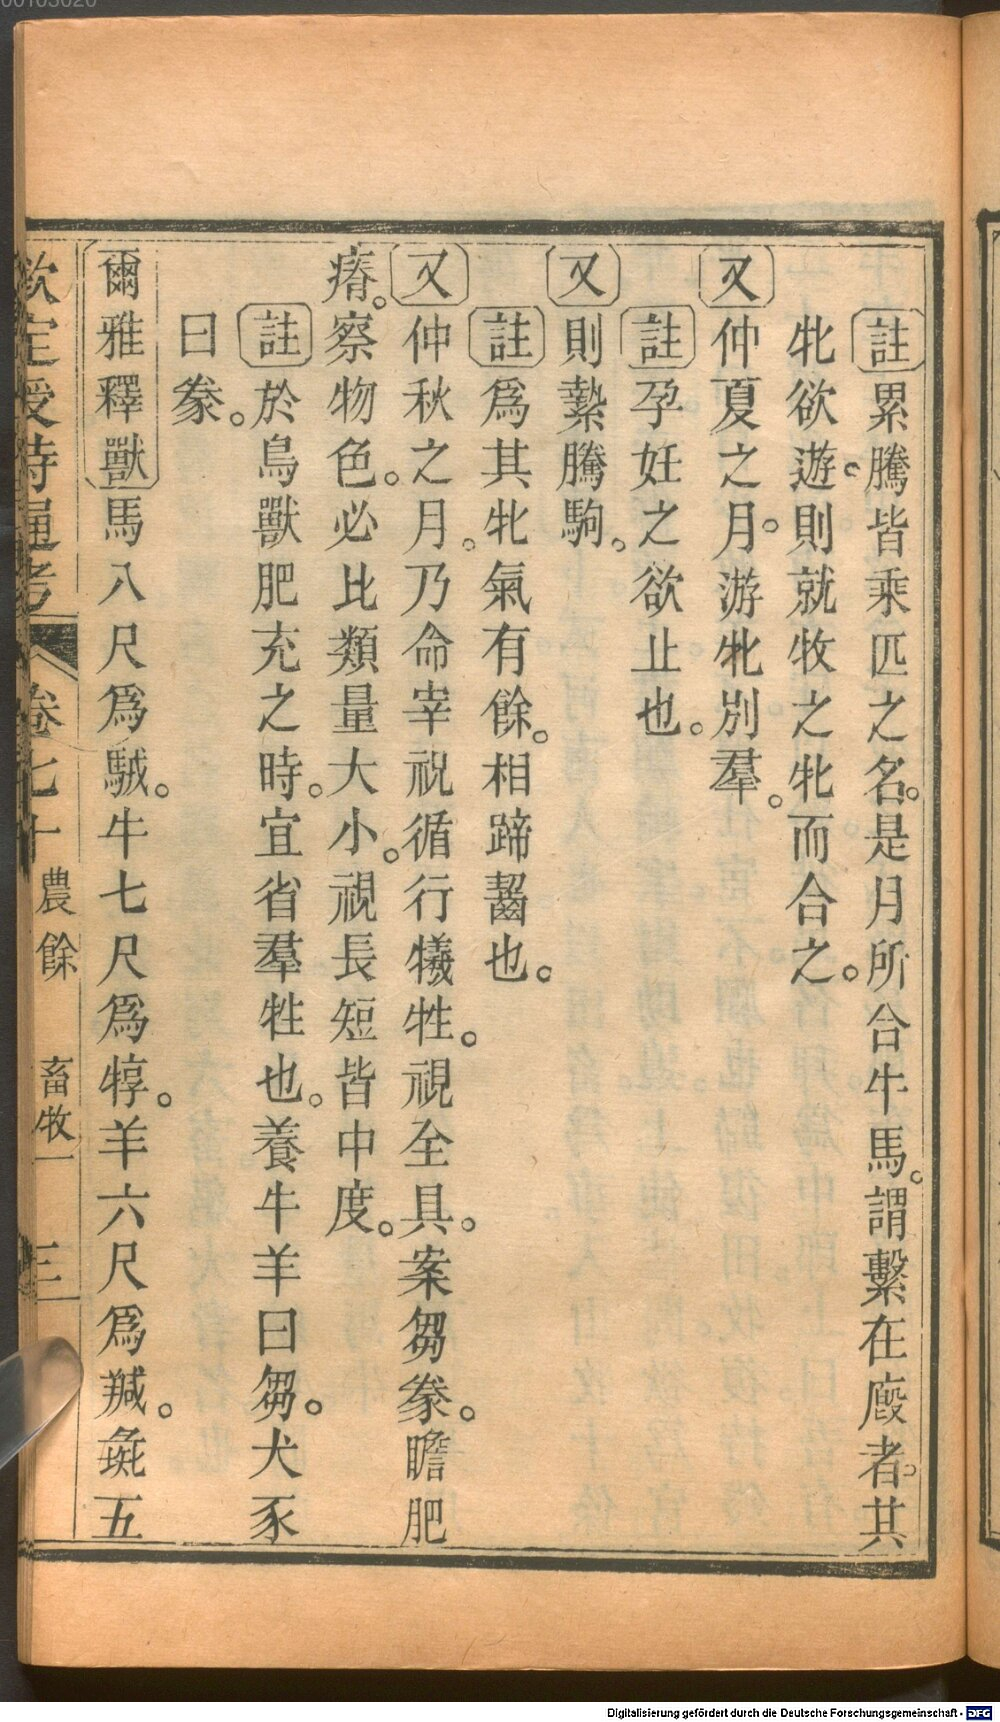 註累騰皆乘匹之名。是月所合牛馬。謂繫在廄者。其
牝欲遊。則就牧之牝而合之。
又仲夏之月。游牝別羣。
註孕妊之欲止也。
又則縶騰駒。
註爲其牝氣有餘。相蹄齧也。
又仲秋之月。乃命宰祝循行犧牲。視全具。案芻豢。瞻肥
瘠。察物色。必比類量大小。視長短皆中度。
註於鳥獸肥充之時。宜省羣牲也。養牛羊曰芻。犬豕
曰豢。
爾雅釋獸馬八尺爲駥。牛七尺爲犉。羊六尺爲羬。彘五
欽定授時通考 卷七十 農餘 畜牧一 三
00103020
Digitalisierung gefördert durch die Deutsche Forschungsgemeinschaft - DFG